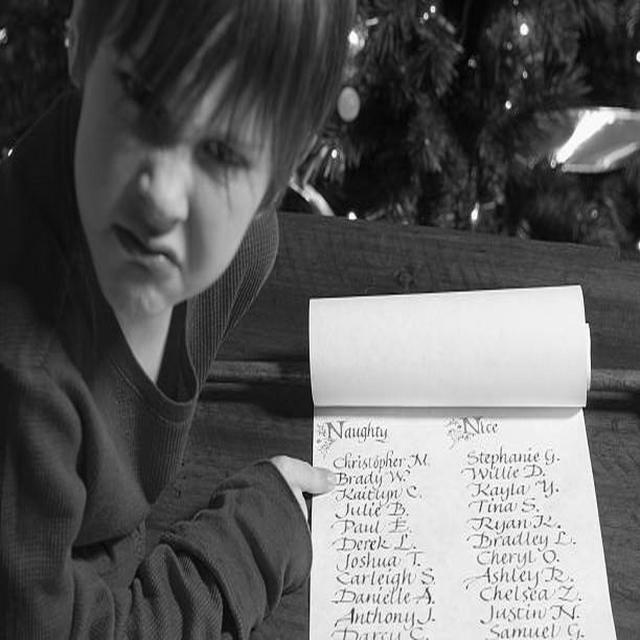 Naughty
Christopher M.
Brady W.
Kaitlyn C.
Julie B.
Paul E.
Derek L.
Joshua T.
Carleigh S.
Danielle A.
Anthony J.
Darcy C.
Nice
Stephanie G.
Willie D.
Kayla Y.
Tina S.
Ryan K.
Bradley L.
Cheryl O.
Ashley R.
Chelsea Z.
Justin N.
Samuel G.